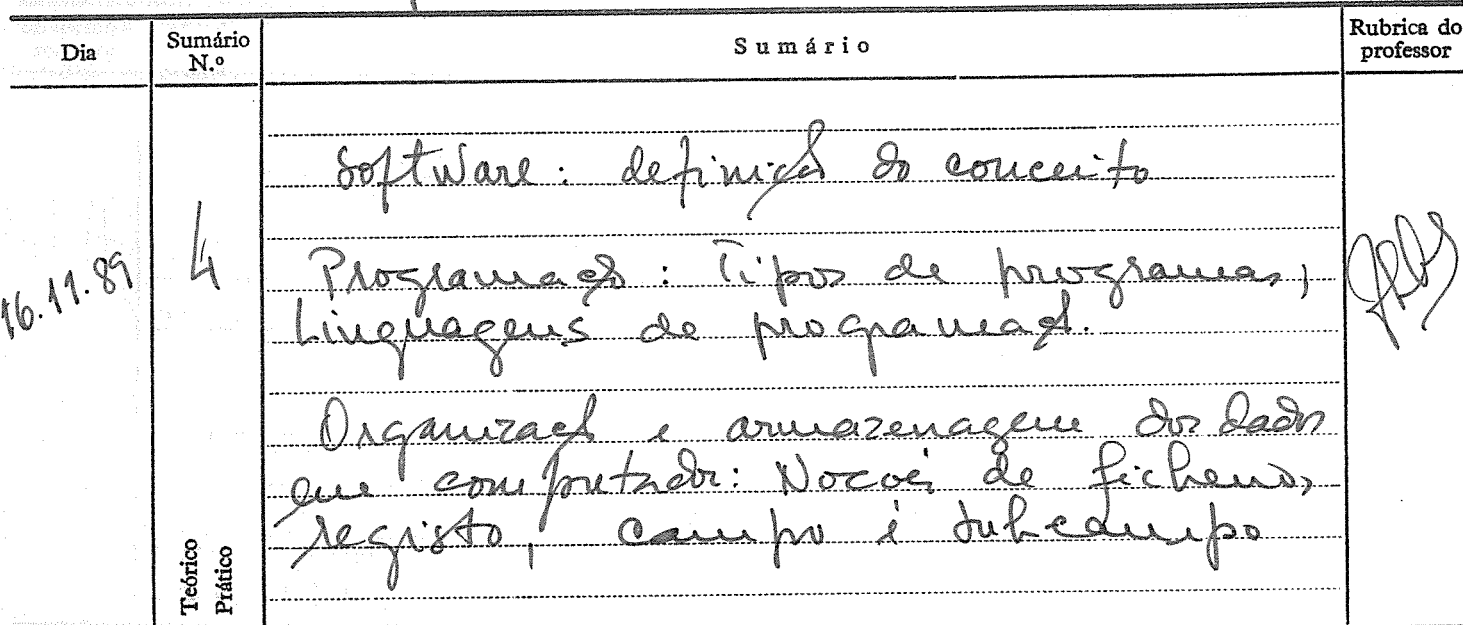 Dia
Sumário N.º
Sumário
Rubrica do professor
16.11.89
4
Software: definição do conceito
Programação: Tipos de programas,
Linguagens de programação.
Organização e armazenagem dos dados
em computador: Noções de ficheiro,
registo, campo e subcampo
Teórico
Prático